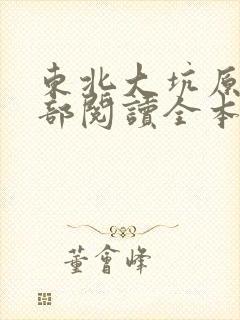 東北大坑原
部閱讀全本
董會峰